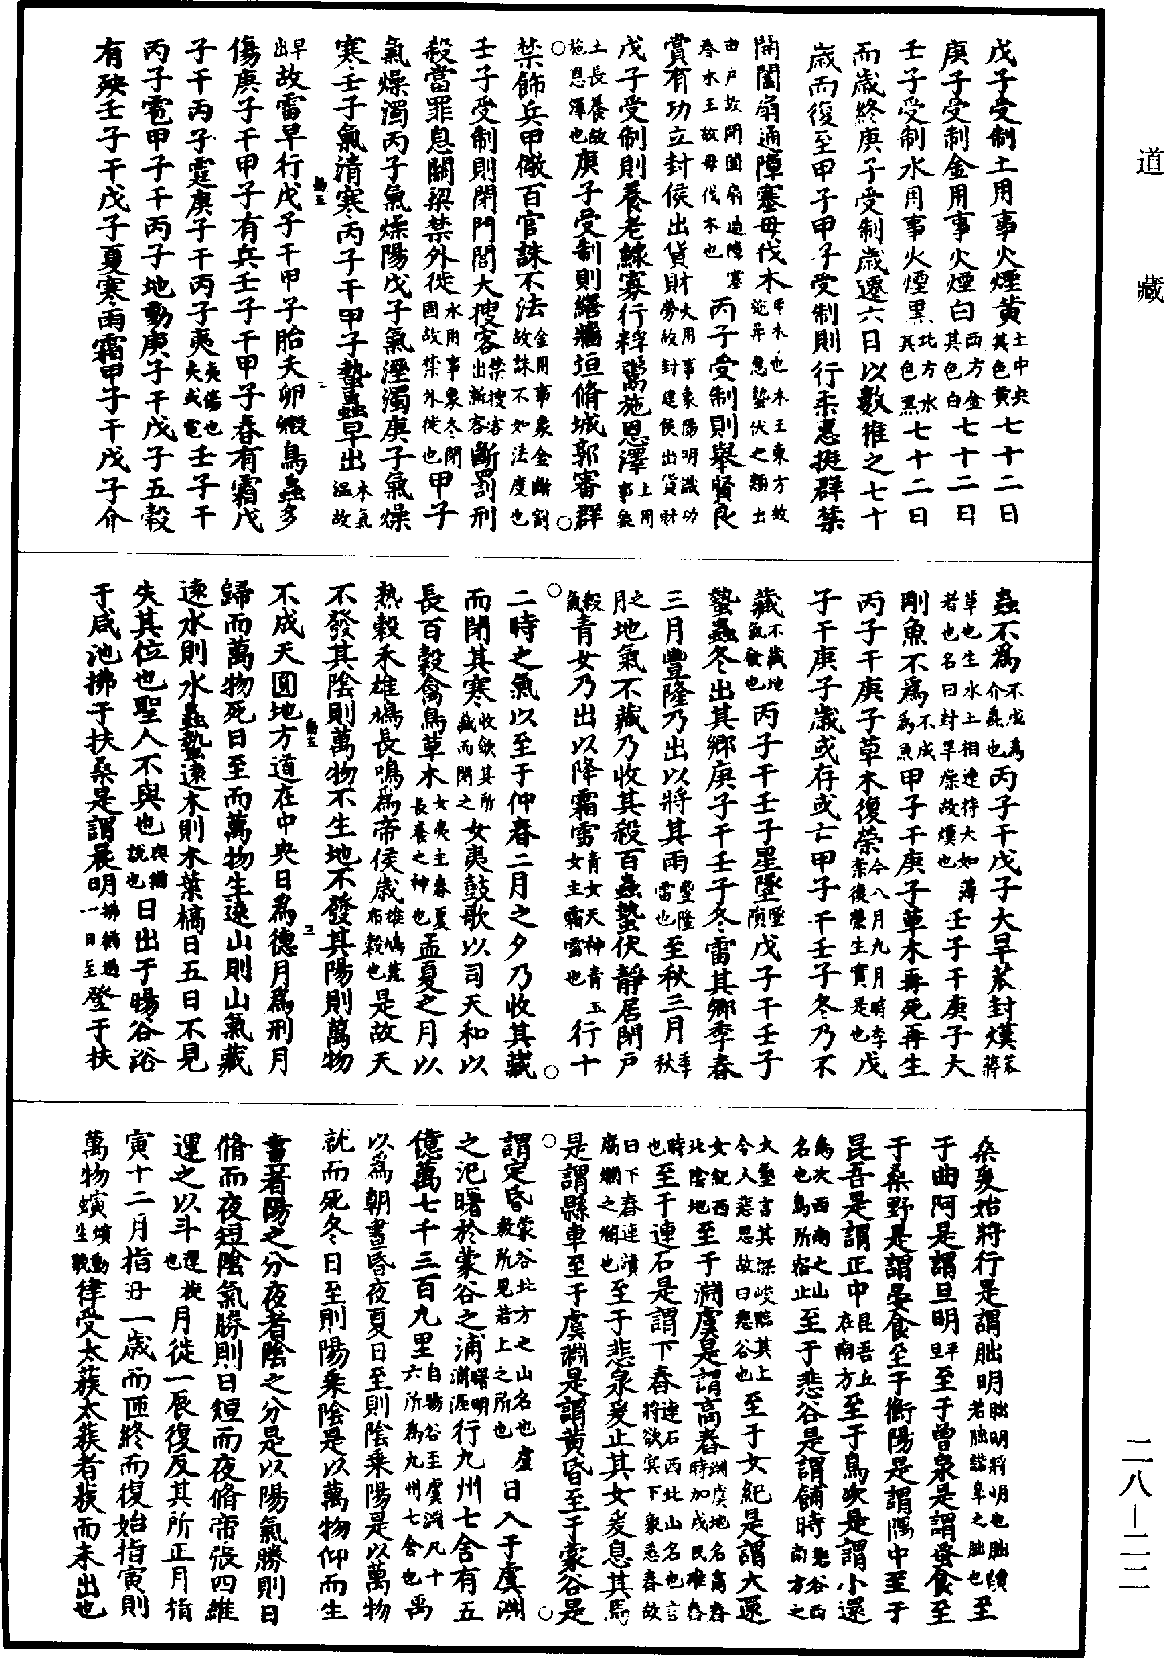 道藏
戊子受制土用事火煙黃土中央其色黃七十二日
庚子受制金用事火煙白西方金其色白七十二日
壬子受制水用事火煙黑北方水其色黑七十二日
而歲終庚子受制歲遷六日以數推之七十
歲而復至甲子甲子受制則行柔惠挺群禁
開闔扇通障塞毋伐木甲木也木王東方故施柔惠蟄伏之類出
由戶故開闔扇通障塞春木王故毋伐木也丙子受制則舉賢良
賞有功立封侯出貨財火用事象陽明識功勞故封建侯出貨財
戊子受制則養老鰥寡行稃鬻施恩澤土用事象
土長養故施恩澤也庚子受制則繕牆垣脩城郭審群
禁飾兵甲儆百官誅不法金用事象金斷割故誅不如法度也
壬子受制則閉門閭大搜客禁搜客出斬客斷罰刑
殺當罪息關梁禁外徙水用事象冬閉固故禁外徙也甲子
氣燥濁丙子氣燥陽戊子氣溼濁庚子氣燥
寒壬子氣清寒丙子干甲子蟄蟲早出木氣溫故
早出故雷早行戊子干甲子胎夭卵毈鳥蟲多
傷庚子干甲子有兵壬子干甲子春有霜戊
子干丙子霆庚子干丙子夷夷傷也夷或電壬子干
丙子雹甲子干丙子地動庚子干戊子五穀
有殃壬子干戊子夏寒雨霜甲子干戊子介
蟲不為不成為介蟲也丙子干戊子大旱苽封熯苽蔣
草也生水上相連持大如薄者也名曰封旱燥故熯也壬子干庚子大
剛魚不為不成為魚甲子干庚子草木再死再生
丙子干庚子草木復榮今八月九月時李柰復榮生實是也戊
子干庚子歲或存或亡甲子干壬子冬乃不
藏不藏地氣發也丙子干壬子星墜墜隕戊子干壬子
蟄蟲冬出其鄉庚子干壬子冬雷其鄉季春
三月豐隆乃出以將其雨豐隆雷也至秋三月季秋
之月地氣不藏乃收其殺百蟲蟄伏靜居閉戶
殺氣青女乃出以降霜雪青女天神青玉女主霜雪也行十
二時之氣以至于仲春二月之夕乃收其藏
而閉其寒收斂其所藏而閉之女夷鼓歌以司天和以
長百穀禽鳥草木女夷主春夏長養之神也孟夏之月以
熟穀禾雄鳩長鳴為帝侯歲雄鳩蓋布穀也是故天
不發其陰則萬物不生地不發其陽則萬物
不成天圓地方道在中央日為德月為刑月
歸而萬物死日至而萬物生遠山則山氣藏
遠水則水蟲蟄遠木則木葉槁日五日不見
失其位也聖人不與也與猶說也日出于暘谷浴
于咸池拂于扶桑是謂晨明拂猶過一曰至登于扶
桑爰始將行是謂朏明朏明將明也朏讀若朏諾皋之朏也至
于曲阿是謂旦明平旦至于曾泉是謂蚤食至
于桑野是謂晏食至于衡陽是謂隅中至于
昆吾是謂正中昆吾丘在南方至于鳥次是謂小還
鳥次西南之山名也鳥所宿止至于悲谷是謂餔時悲谷西南方之
大壑言其深峻臨其上令人悲思故曰悲谷也至于女紀是謂大還
女紀西北陰地至于淵虞是謂高舂淵虞地名高舂時加戌民碓舂
時也至于連石是謂下舂連石西北山名也言將欲冥下象悉舂故
曰下舂連讀腐爛之爛也至于悲泉爰止其女爰息其馬
是謂縣車至于虞淵是謂黃昏至于蒙谷是
謂定昏蒙谷北方之山名也盧敖所見若士之所也日入于虞淵
之汜曙於蒙谷之浦曙明浦涯行九州七舍有五
億萬七千三百九里自暘谷至虞淵凡十六所為九州七舍也禹
以為朝晝昏夜夏日至則陰乘陽是以萬物
就而死冬日至則陽乘陰是以萬物仰而生
晝者陽之分夜者陰之分是以陽氣勝則日
脩而夜短陰氣勝則日短而夜脩帝張四維
運之以斗運旋也月徙一辰復反其所正月指
寅十二月指丑一歲而匝終而復始指寅則
萬物螾螾動生貌律受太蔟太蔟者蔟而未出也
二八－二一二